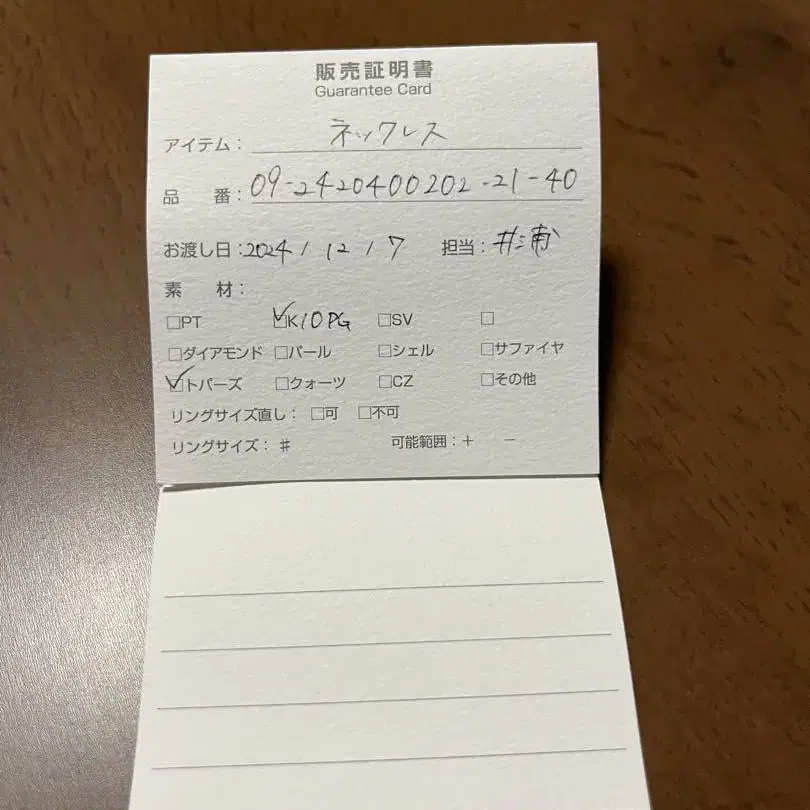 販売証明書
Guarantee Card
アイテム： ネックレス
品　番： 09-2420400202-21-40
お渡し日：2024 / 12 / 7　担当：井浦
素　材：
□PT ☑K10PG □SV □
□ダイアモンド □パール □シェル □サファイヤ
☑トパーズ □クォーツ □CZ □その他
リングサイズ直し： □可 □不可
リングサイズ： # 可能範囲：＋ －